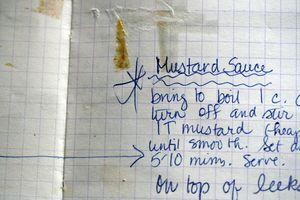 Mustard Sauce
bring to boil 1 c.
turn off and stir
1T mustard (heap
until smooth. Set
5-10 mins. Serve.
on top of leeks